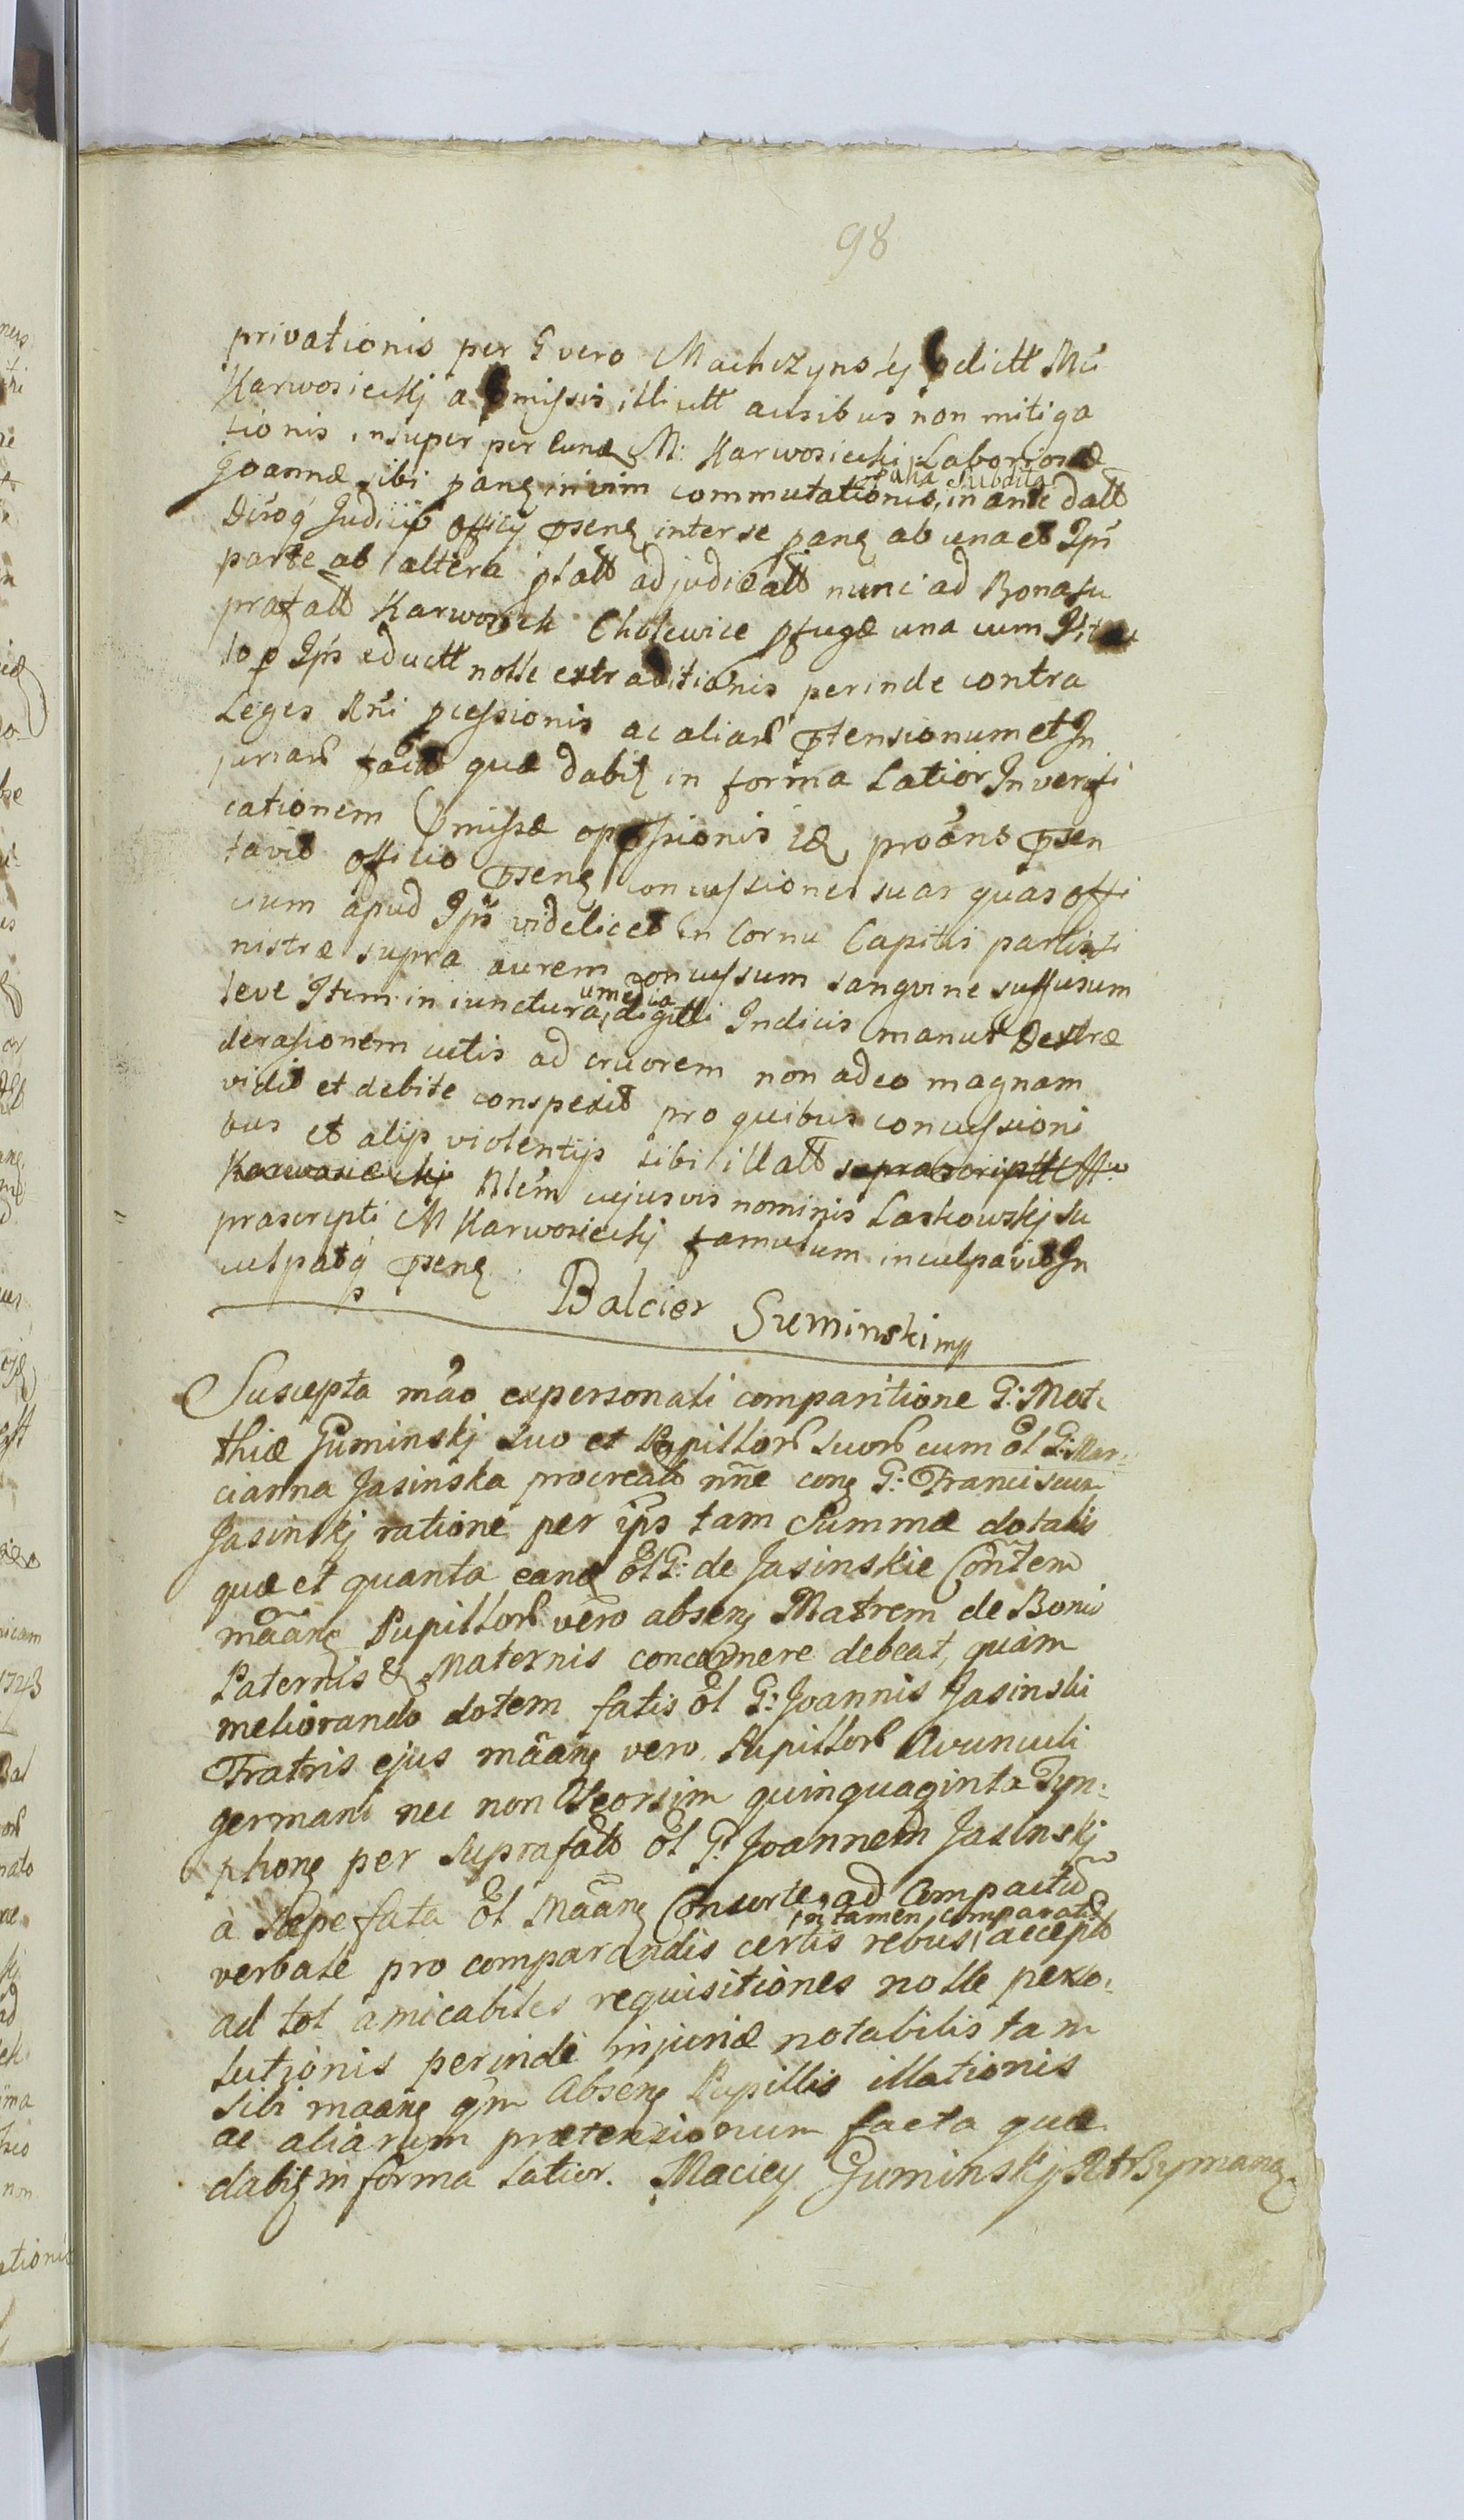 98
privationis per G vero Machczynskj dictt Mci
Karwosieckj a missis illicitt ausibus non mitiga
tionis insuper per eund M: Karwosiecki Laboriosæ
opaha Subdita
Joannæ sibi pang in vim commutationis, in ante datt
Judicij Officij psenq inter se pang ab una et Ipm
parte ab altera ptatt adjudicatt nunc ad Bona su
prafatt Karwosieck Cholewice pfugæ una cum
to p Ips eductt nolle extraditionis perinde contra
Leges Rni pcessionis ac aliar ptensionum et In
juriar facta quæ dabit in forma Latior In verifi
cationem Omissæ oppssionis id proans psen
tavit officio psenq concussiones suas quas offi
cium apud Ipm videlicet in Cornu Capitis partis si
nistræ supra aurem concussum sanguine suffusum
umedia
leve Item in iunctura, digitti Indicis manus Dextræ
derasionem cutis ad cruorem non adeo magnam
vidit et debite conspexit pro quibus concussioni
bus et alijs violentijs sibi illatt suprascriptt
Karwosieckj Nlem cujusvis nominis Laskowskj su
prascripti M Karwosieckj famulum inculpavit In
culpatq psenq
Balcier Suminski mp
Suscepta mao expersonali comparitione G: Mat-
thiæ Guminskj suo et Pupillor suor cum ol G: Mar-
cianna Jasinska procreatt nne conq G: Franciscum
Jasinskj ratione per ips tam Summæ dotalis
quæ et quanta eand ol G: de Jasinskie Contem
maanq Pupillor vero absenq Matrem de Bonis
Paternis & Maternis concernere debeat, quam
meliorando dotem fatis ol G: Joannis Jasinski
Fratris ejus maanq vero Pupillor Avunculi
germani nec non Seorsim quinquaginta Tyn-
phonq per suprafatt ol G: Joannem Jasinskj
à sæpefata ol Maanq Consorte ad Compactu
in tamen comparatis
verbale pro comparandis certis rebus, accept
ad tot amicabiles requisitiones nolle perso-
lutionis perinde injuriæ notabilis tam
sibi maanq qm Absenq Pupillis illationis
ac aliarum prætensionum facta quæ
dabit in forma latior. Maciey Guminskj RtBymanq